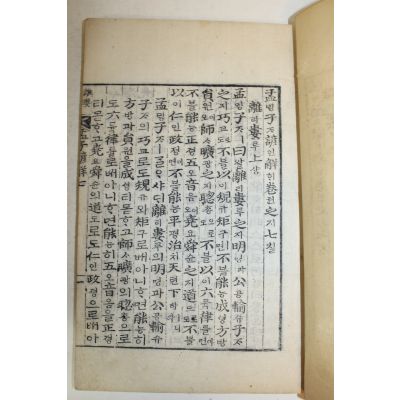 孟밍子ᄌᆞ諺언解ᄒᆡ卷권之지七칠
離리婁루上샹
孟밍子ᄌᆞㅣ曰왈離리婁루之지明명과公공輸슈子ᄌᆞ
之지巧교로도不블以이規규矩구ㅣ면不블能능成셩方방
員원이오師ᄉᆞ曠광之지聰총으로도不블以이六륙律률이면
不블能능正졍五오音음이오堯요舜슌之지道도로도不블
以이仁인政졍이면不블能능平평治티天텬下하ㅣ니라
孟밍子ᄌᆞㅣᄀᆞᆯᄋᆞ샤ᄃᆡ離리婁루의明명과公공輸슈
子ᄌᆞ의巧교로도規규와矩구로ᄡᅥ아니ᄒᆞ면能능히
方방과員원을成셩티몯ᄒᆞ고師ᄉᆞ曠광의聰총으로
도六륙律률로ᄡᅥ아니ᄒᆞ면能능히五오音음을正졍
티몯ᄒᆞ고堯요舜슌의道도로도仁인政졍으로ᄡᅥ아
孟子諺解 七